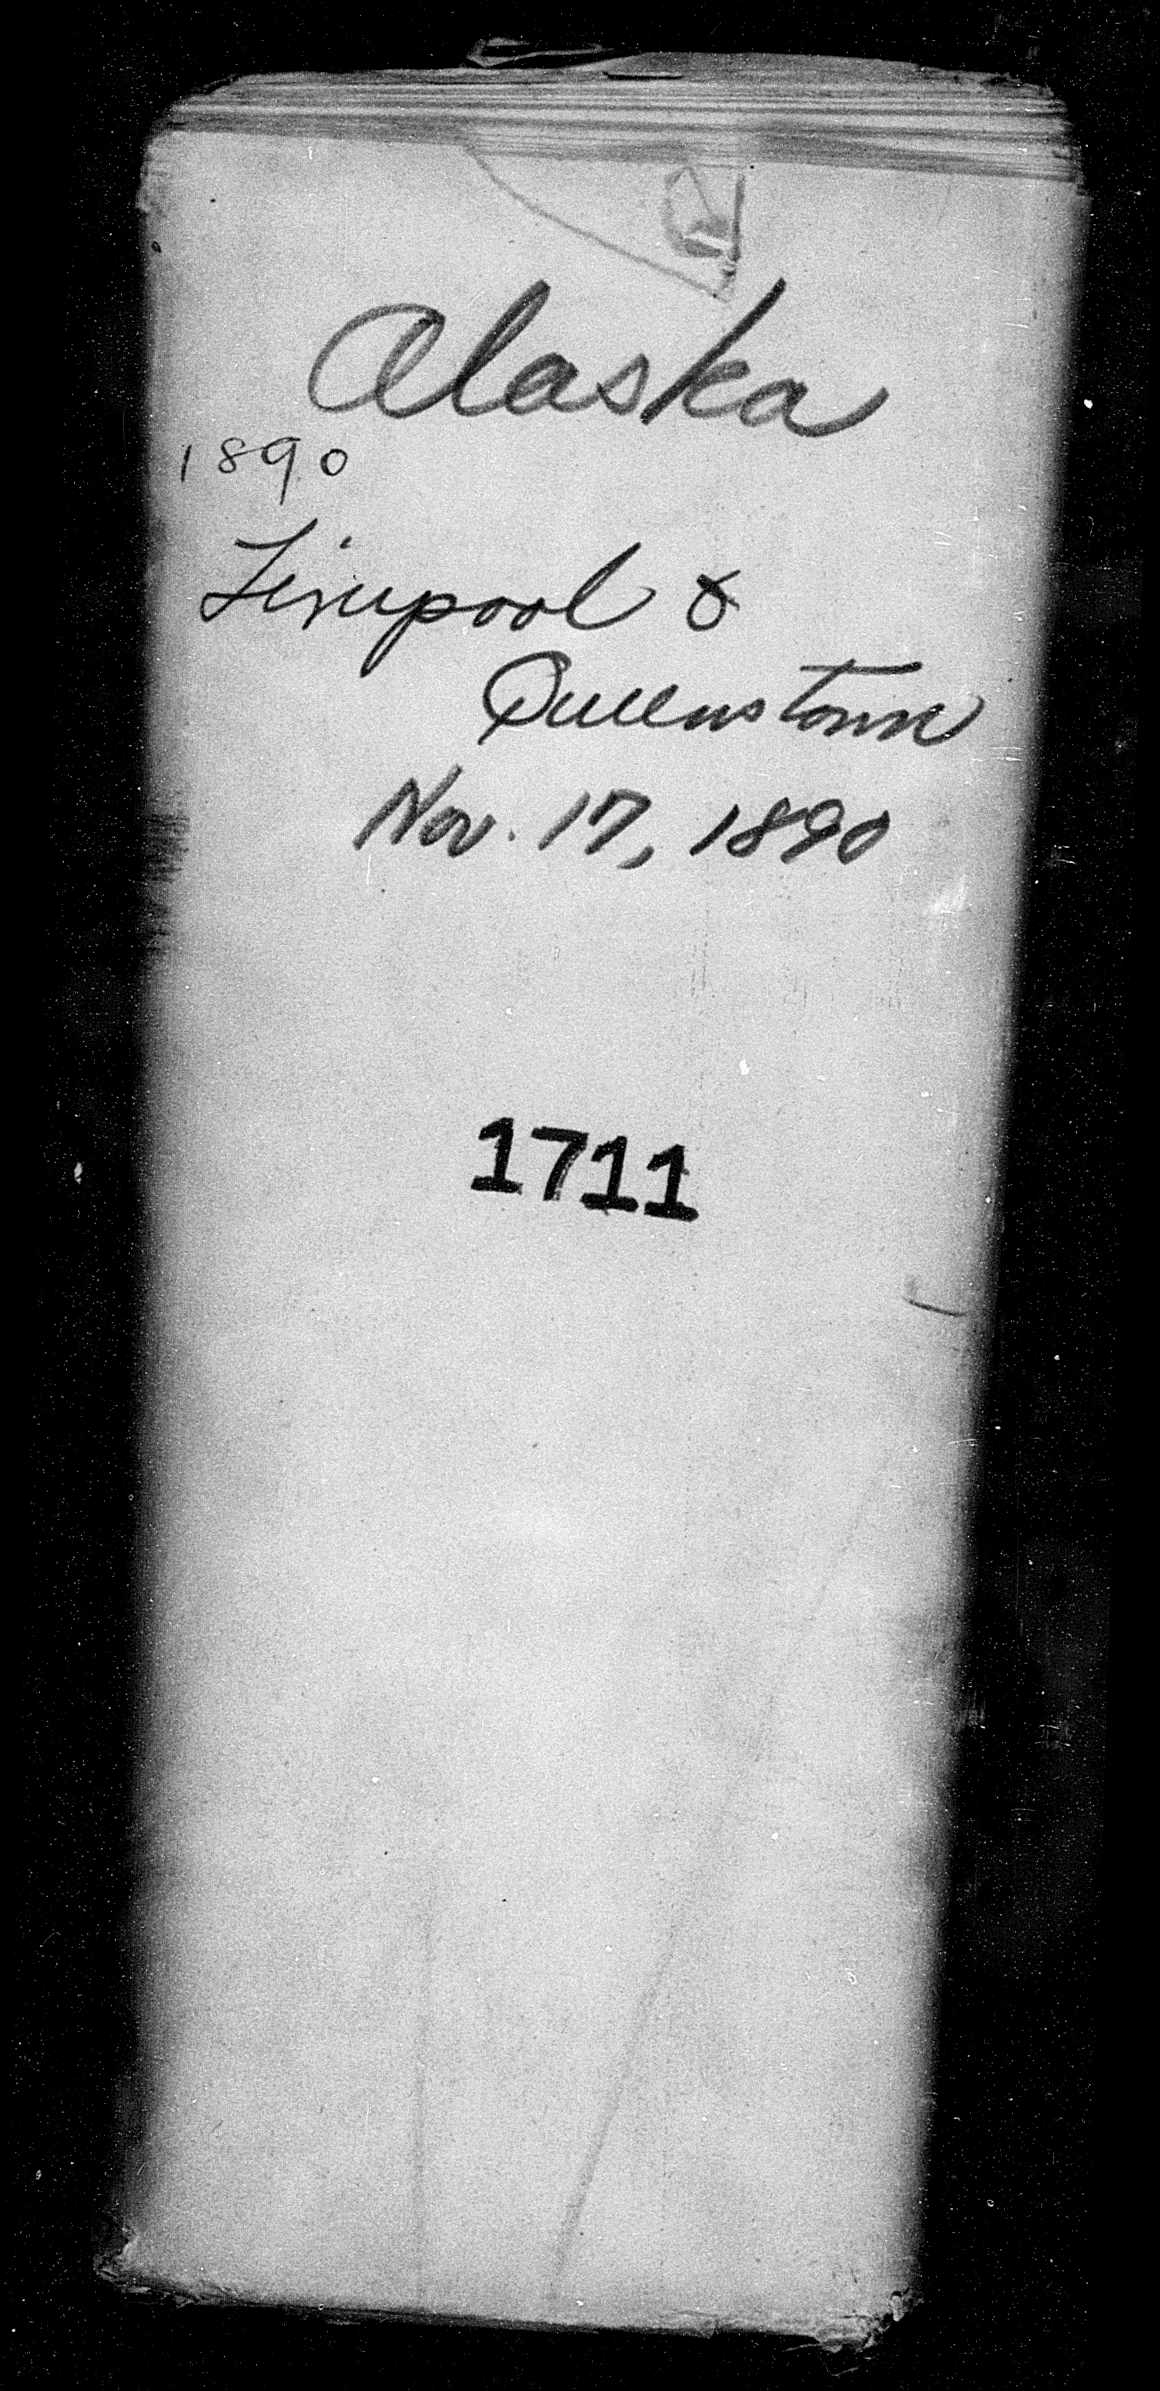 Alaska
1890
Liverpool &
Queenstown
Nov. 17, 1890
1711